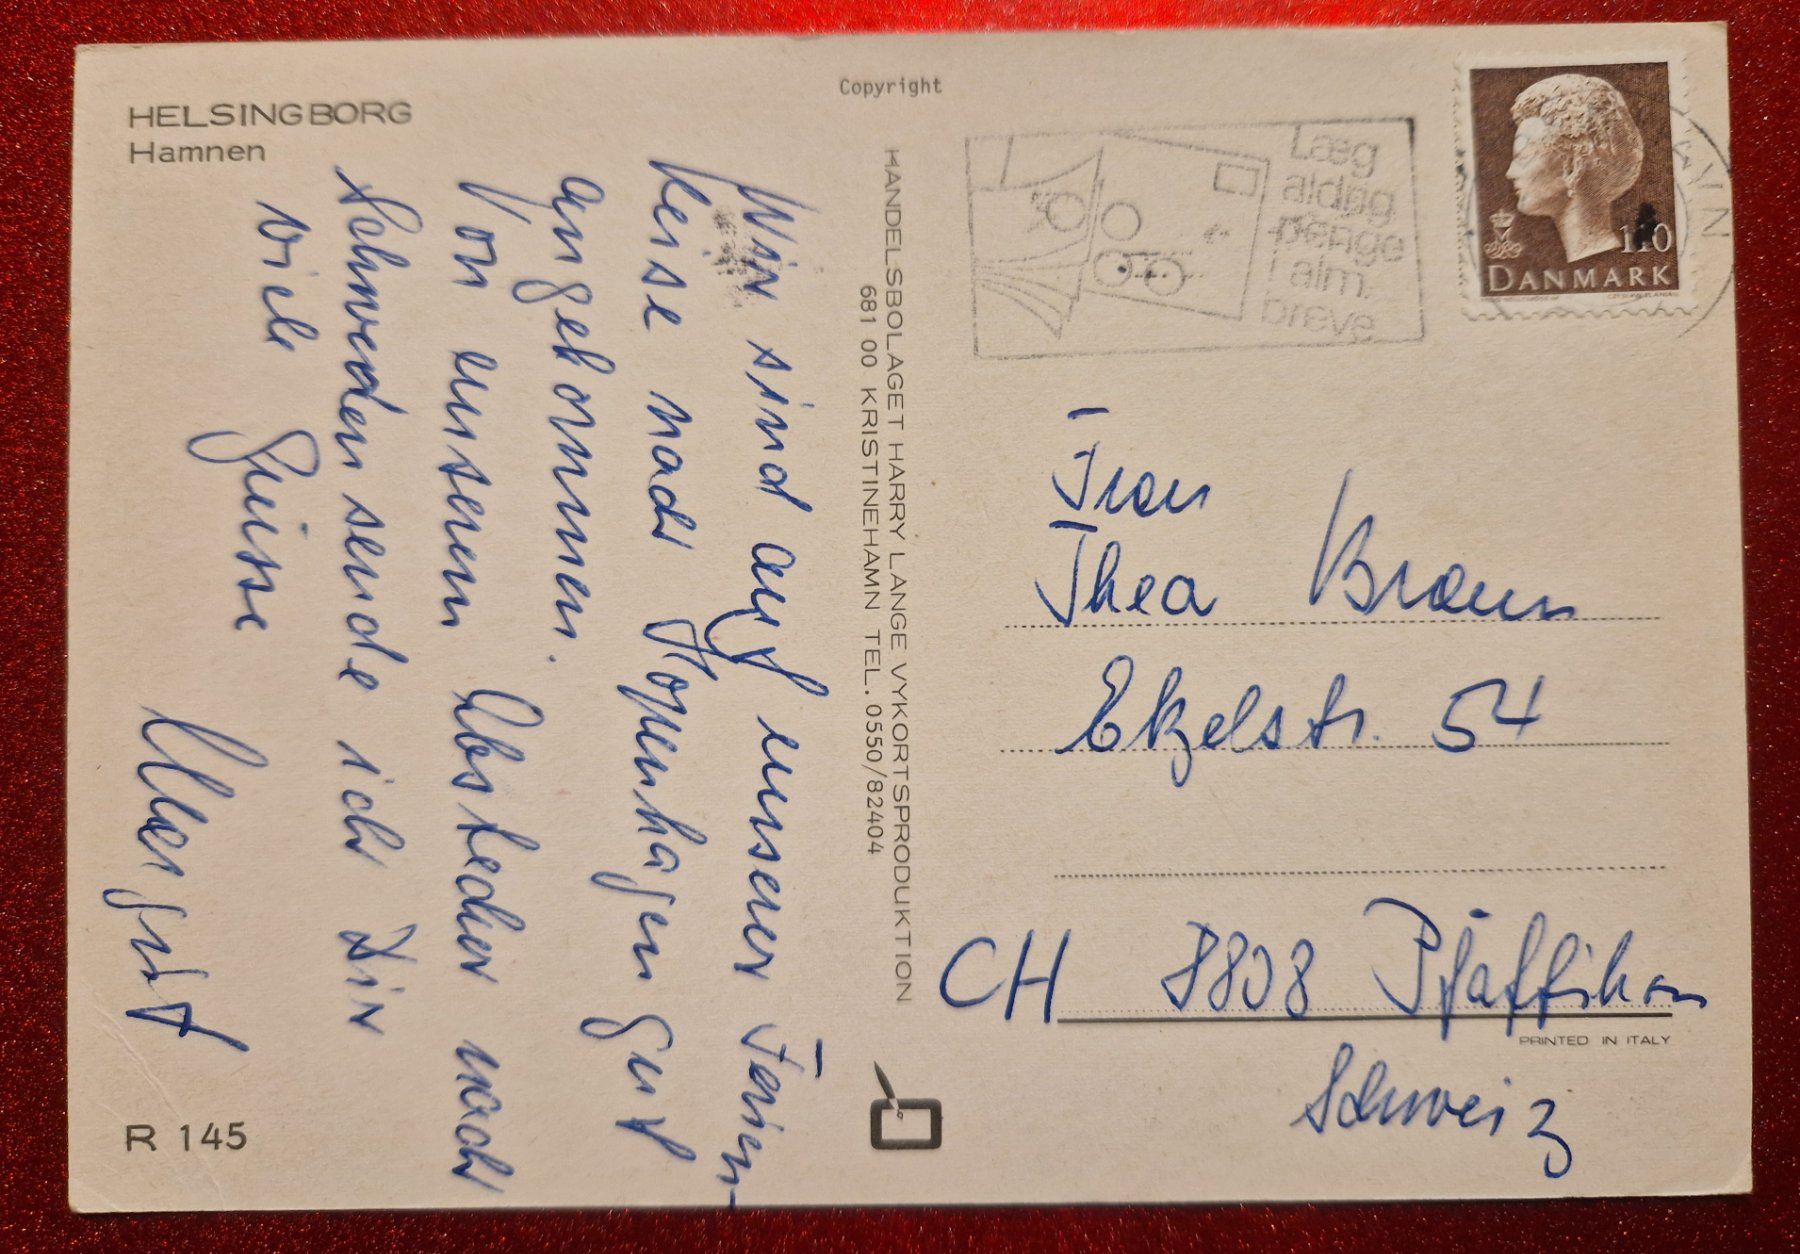 HELSINGBORG
Hamnen
Copyright
Wir sind auf unserer Ferien-
reise nach Kopenhagen gut
angekommen.
Von unserem Abstecher nach
Schweden sende ich Dir
viele Grüsse
Margrit
R 145
HANDELSBOLAGET HARRY LANGE VYKORTSPRODUKTION
681 00 KRISTINEHAMN TEL. 0550/82404
Læg
aldrig
penge
i alm.
breve
110
DANMARK
Frau
Thea Braun
Etzelstr. 54
CH 8808 Pfäffikon
PRINTED IN ITALY
Schweiz